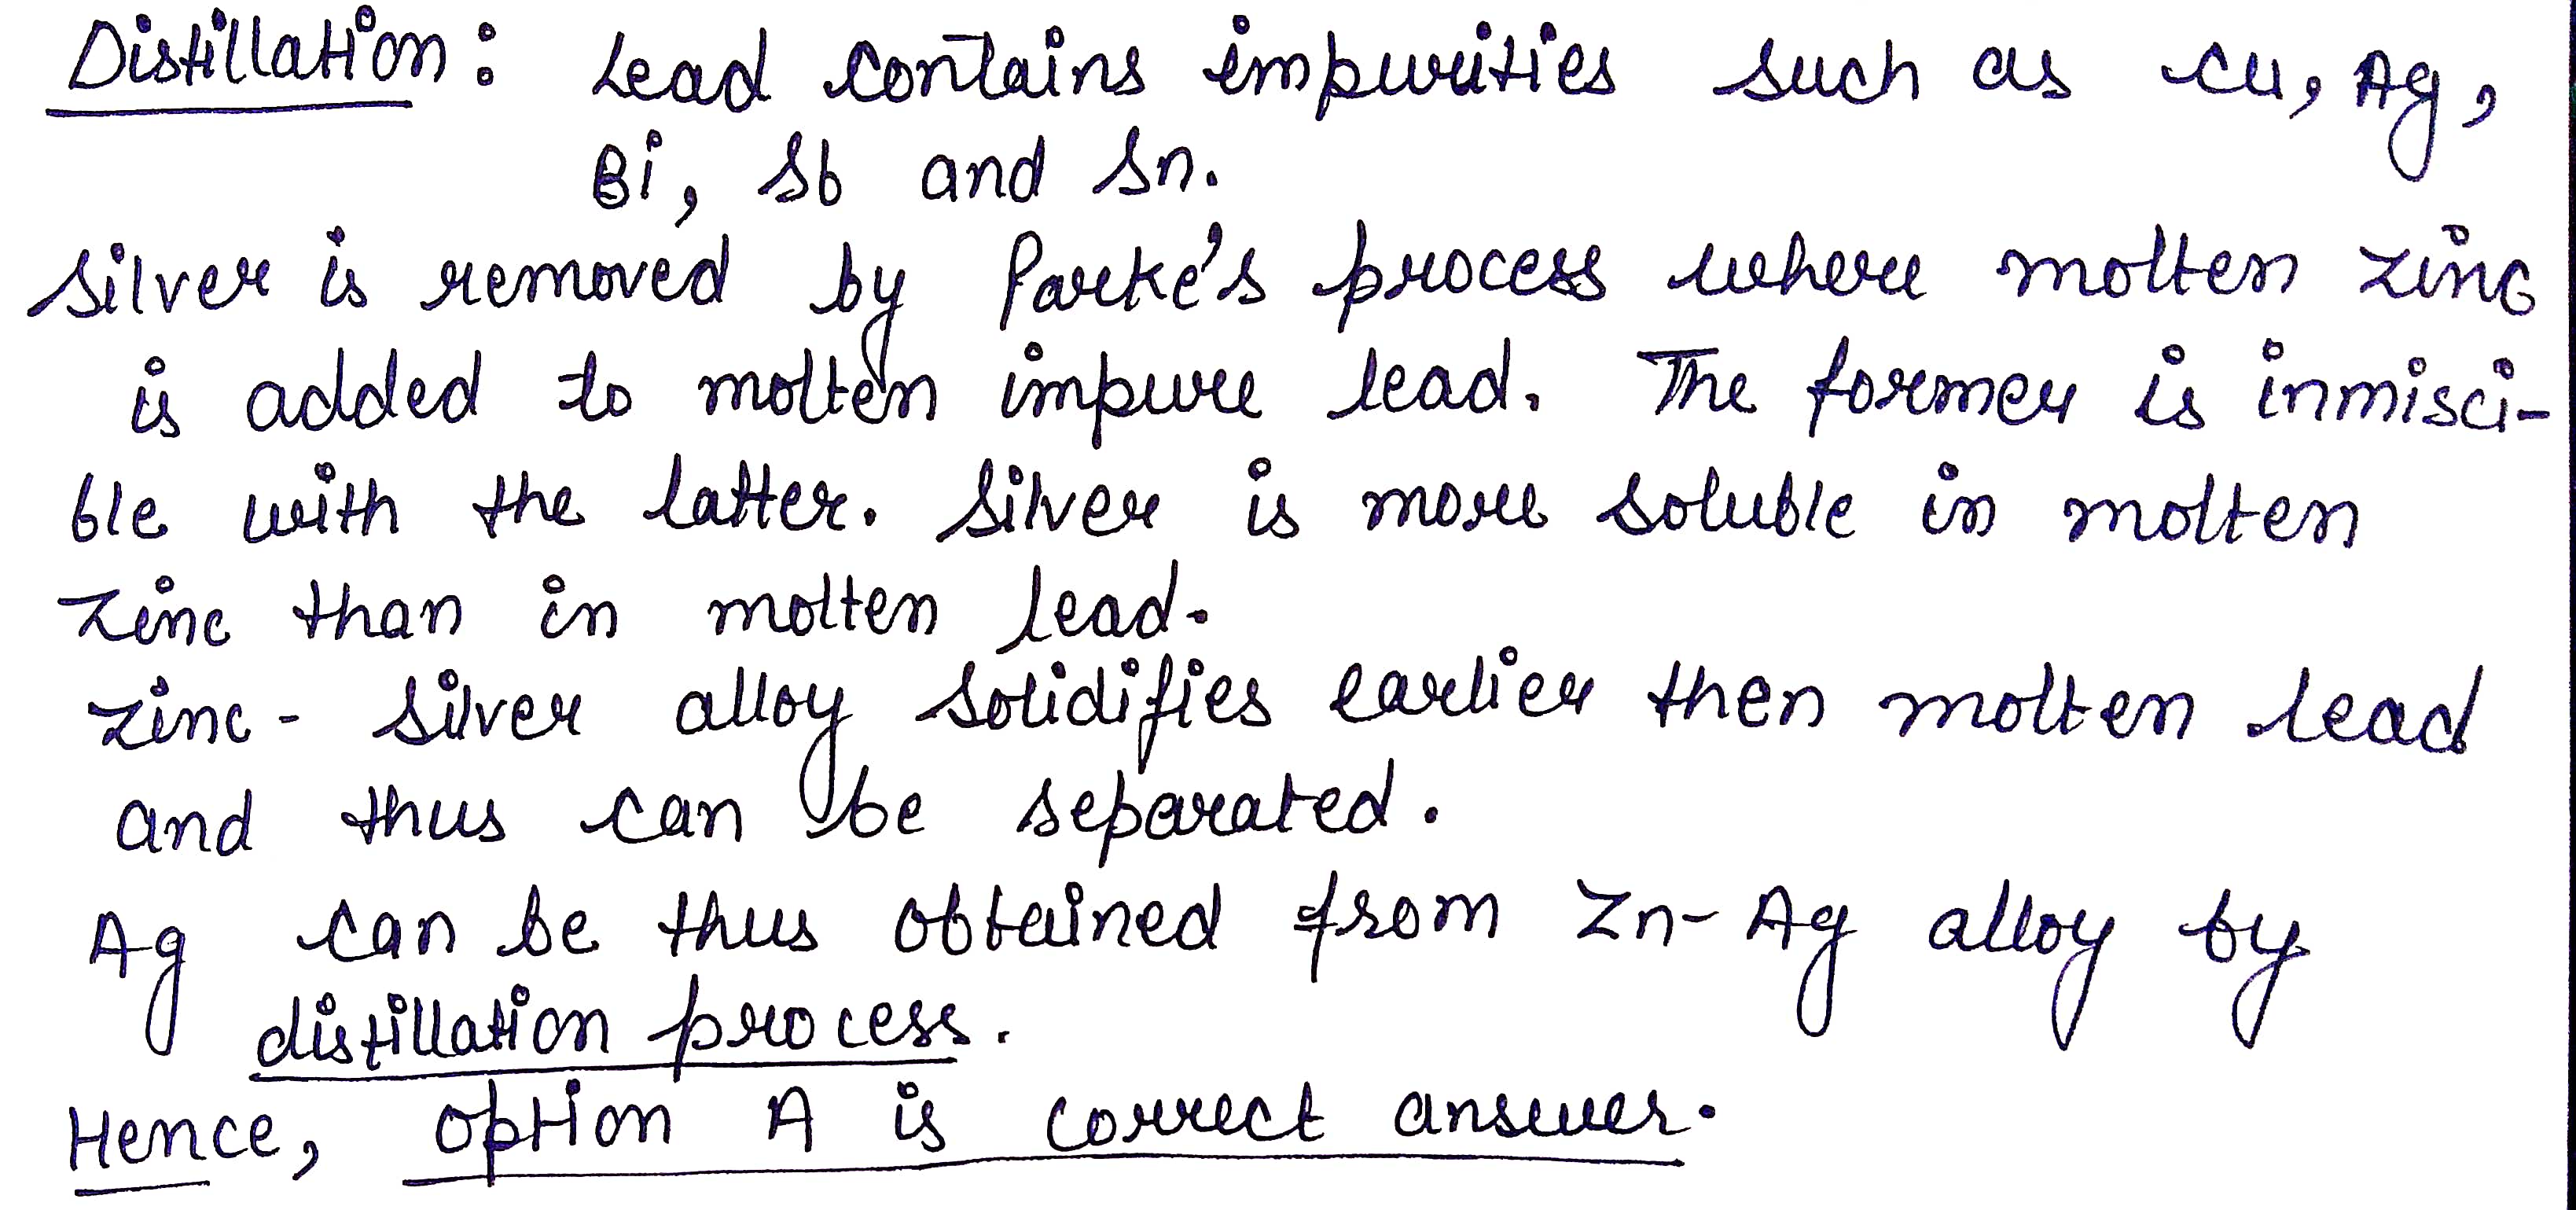 Distillation: Lead contains impurities such as Cu, Ag,
Bi, Sb and Sn.
Silver is removed by Parke's process where molten zinc
is added to molten impure lead. The former is inmisci-
ble with the latter. Silver is more soluble in molten
zinc than in molten lead.
zinc - silver alloy solidifies earlier then molten lead
and thus can be separated.
Ag can be thus obtained from Zn-Ag alloy by
distillation process.
Hence, option A is correct answer.